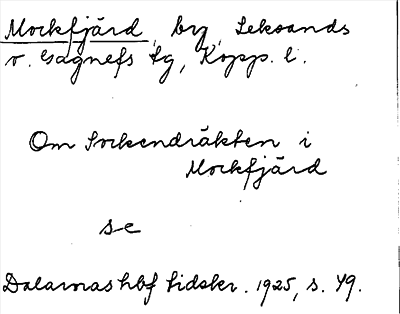 Mockfjärd, by, Leksands
o. Gagnefs tg, Kopp. l.
Om Sockendräkten i
Mockfjärd
se
Dalarnas hbf tidskr. 1925, s. 49.